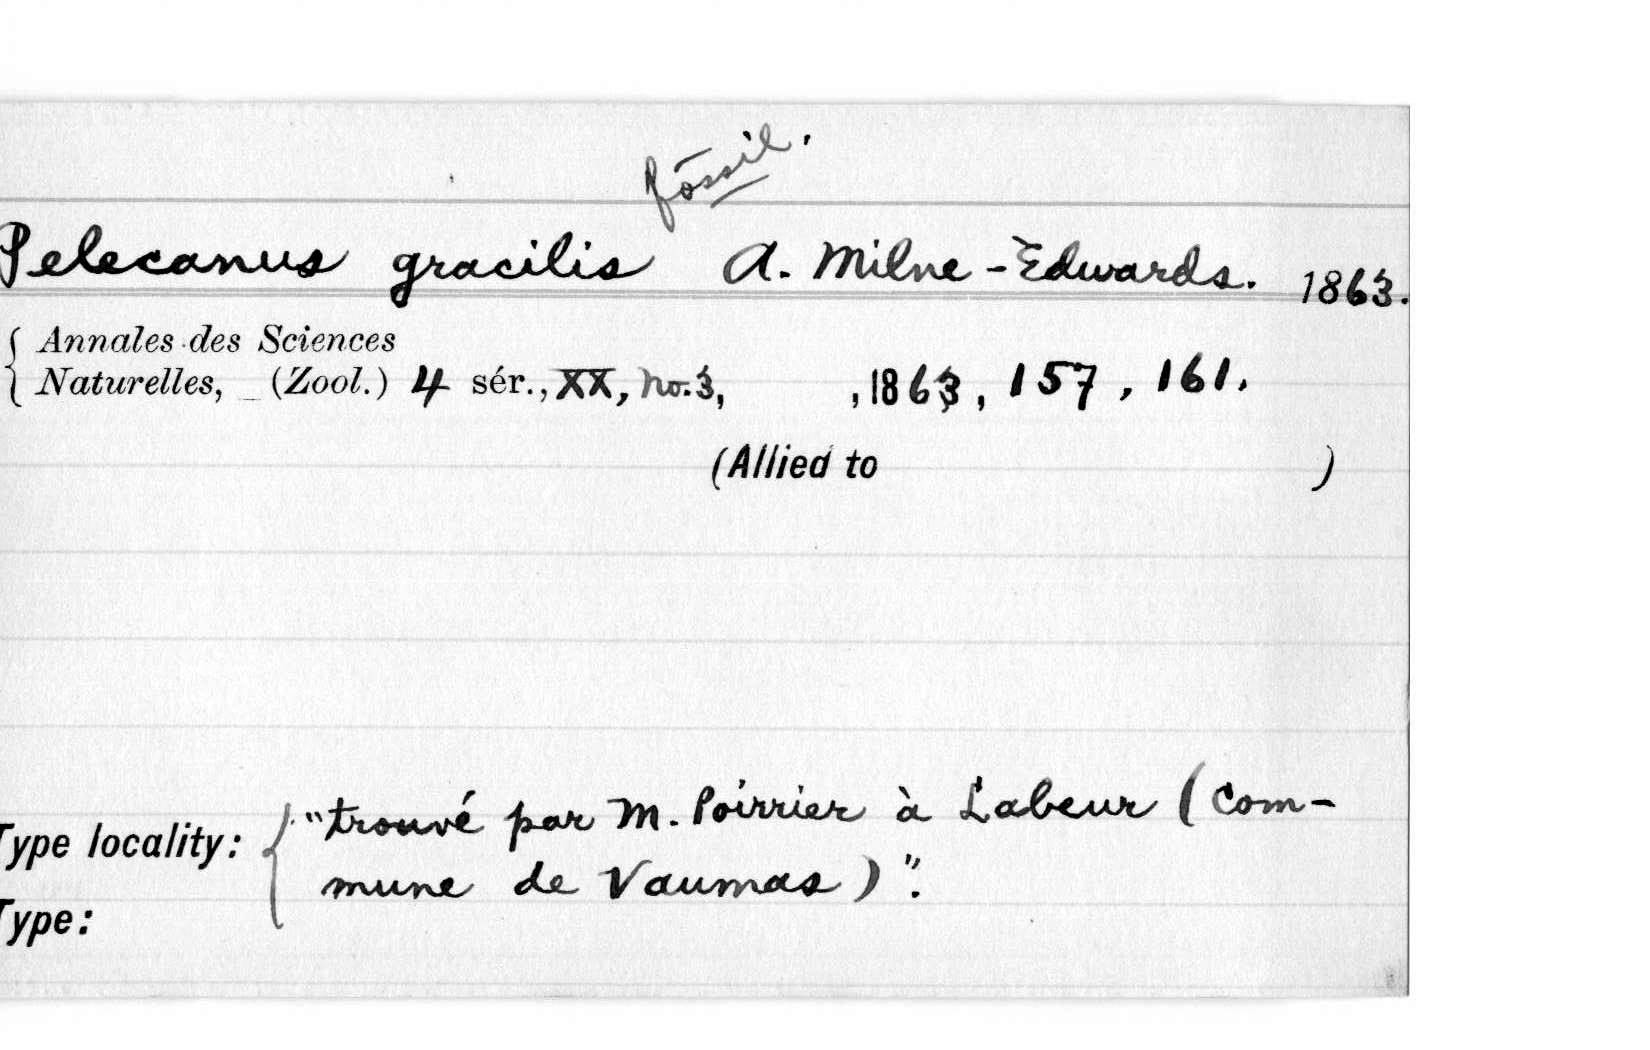 fossil.
Pelecanus gracilis A. Milne-Edwards. 1863.
Annales des Sciences
Naturelles, _ (Zool.) 4 sér., XX, no. 3, , 1863, 157, 161.
(Allied to )
"trouvé par M. Poirrier à Labeur (Com-
Type locality:
mune de Vaumas)".
Type: